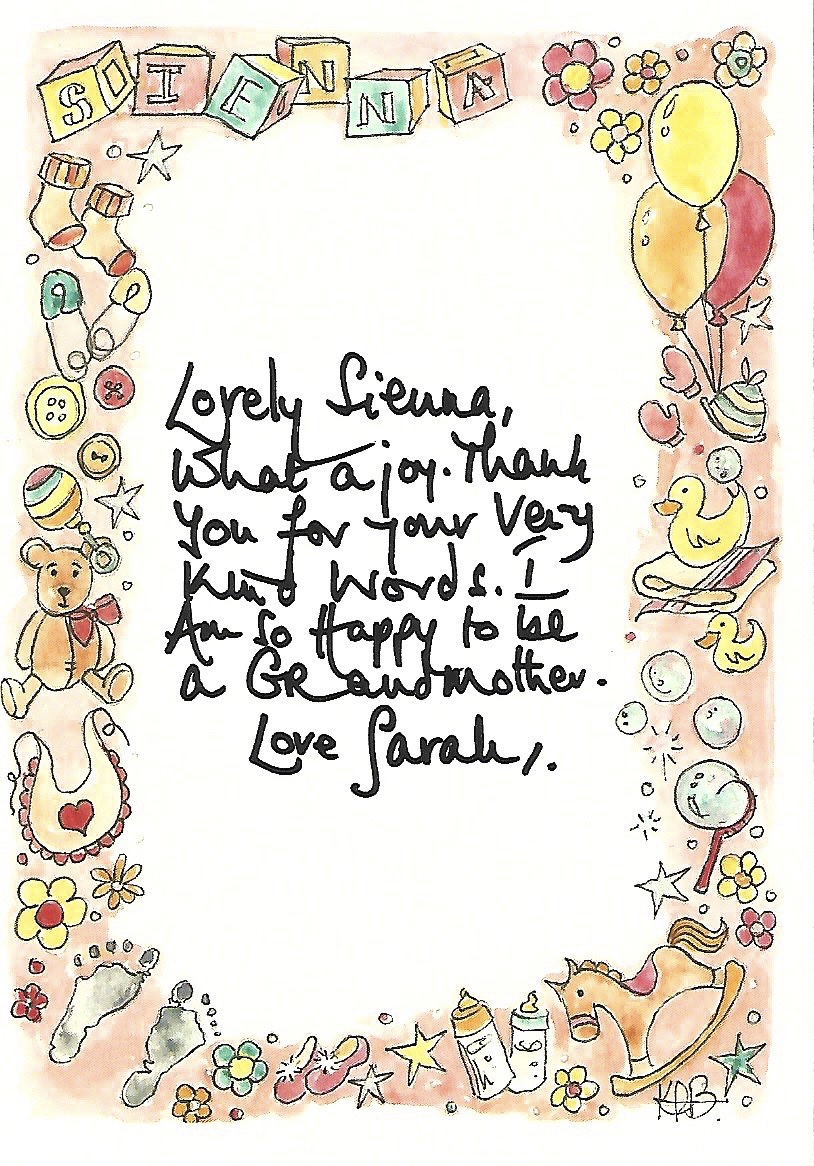 SIENNA
Lovely Sienna,
What a joy. Thank
You for your Very
Kind Words. I
Am So Happy to be
a GRandmother.
Love Sarah,.
KAB.